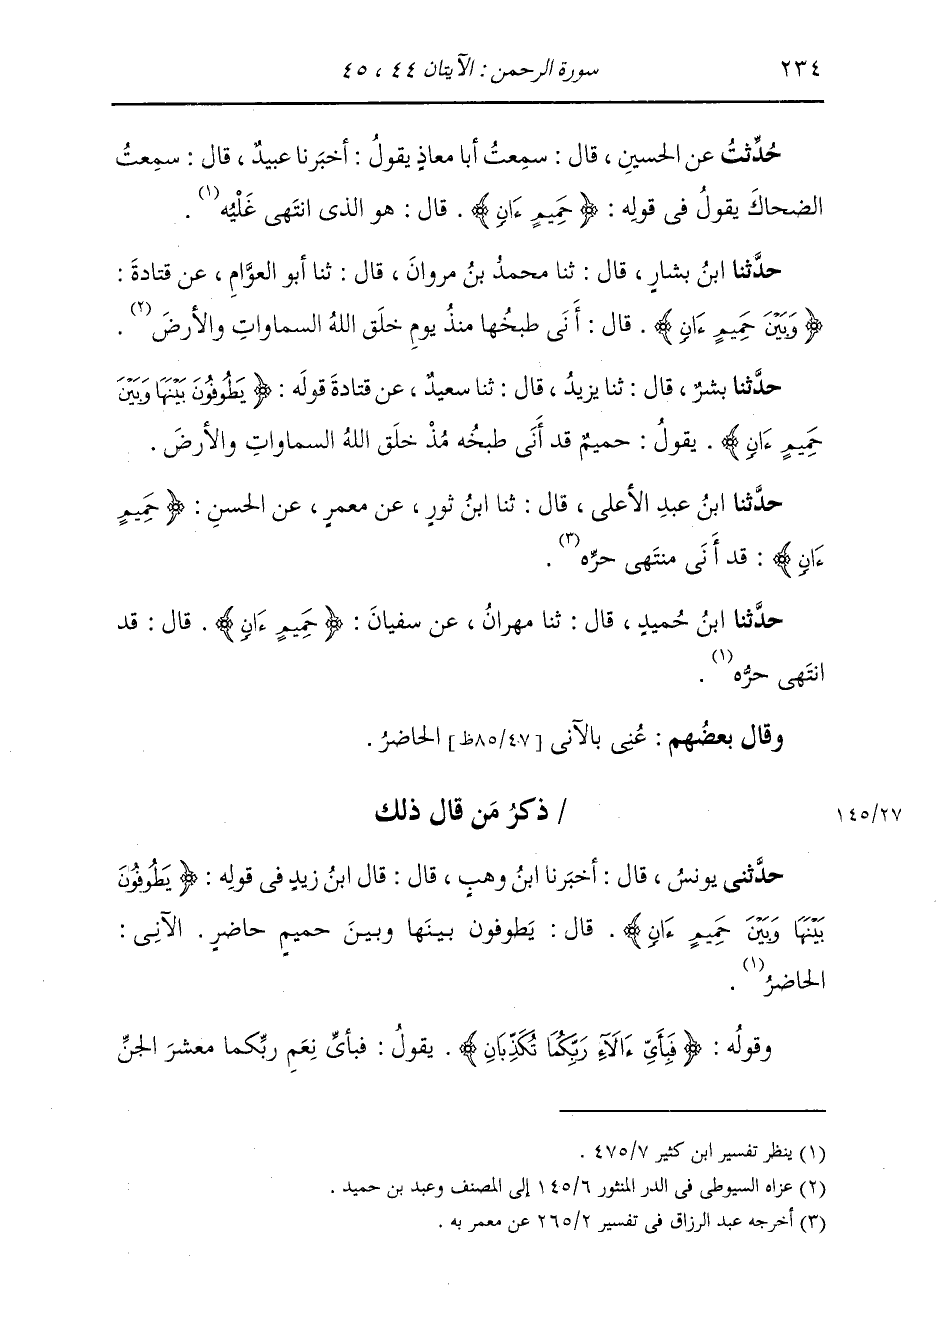 ٢٣٤ سورة الرحمن : الآيتان ٤٤ ، ٤٥
حُدِّثتُ عن الحسينِ ، قال : سمِعتُ أبا معاذٍ يقولُ : أخبَرنا عبيدٌ ، قال : سمِعتُ
الضحاكَ يقولُ فى قولِه : ﴿ حَمِيمٍ ءَانٍ ﴾ . قال : هو الذى انتَهى غَلْيُه(١) .
حدَّثنا ابنُ بشارٍ ، قال : ثنا محمدُ بنُ مروانَ ، قال : ثنا أبو العوَّامِ ، عن قتادةَ :
﴿ وَبَيْنَ حَمِيمٍ ءَانٍ ﴾ . قال : أَنَى طبخُها منذُ يومِ خلَق اللهُ السماواتِ والأرضَ(٢) .
حدَّثنا بشرٌ ، قال : ثنا يزيدُ ، قال : ثنا سعيدٌ ، عن قتادةَ قولَه : ﴿ يَطُوفُونَ بَيْنَهَا وَبَيْنَ
حَمِيمٍ ءَانٍ ﴾ . يقولُ : حميمٌ قد أَنَى طبخُه مُذْ خلَق اللهُ السماواتِ والأرضَ .
حدَّثنا ابنُ عبدِ الأعلى ، قال : ثنا ابنُ ثورٍ ، عن معمرٍ ، عن الحسنِ : ﴿ حَمِيمٍ
ءَانٍ ﴾ : قد أَنَى منتَهى حرِّه(٣) .
حدَّثنا ابنُ حُميدٍ ، قال : ثنا مهرانُ ، عن سفيانَ : ﴿ حَمِيمٍ ءَانٍ ﴾ . قال : قد
انتَهى حرُّه(١) .
وقال بعضُهم : عُنِى بالآنى [٨٥/٤٧ظ] الحاضرُ .
/ ذكرُ مَن قال ذلك ١٤٥/٢٧
حدَّثنى يونسُ ، قال : أخبَرنا ابنُ وهبٍ ، قال : قال ابنُ زيدٍ فى قولِه : ﴿ يَطُوفُونَ
بَيْنَهَا وَبَيْنَ حَمِيمٍ ءَانٍ ﴾ . قال : يَطوفون بينَها وبينَ حميمٍ حاضرٍ . الآنِى :
الحاضرُ(١) .
وقولُه : ﴿ فَبِأَيِّ ءَالَآءِ رَبِّكُمَا تُكَذِّبَانِ ﴾ . يقولُ : فبأىِّ نِعَمِ ربِّكما معشرَ الجنِّ
(١) ينظر تفسير ابن كثير ٤٧٥/٧ .
(٢) عزاه السيوطى فى الدر المنثور ١٤٥/٦ إلى المصنف وعبد بن حميد .
(٣) أخرجه عبد الرزاق فى تفسير ٢٦٥/٢ عن معمر به .